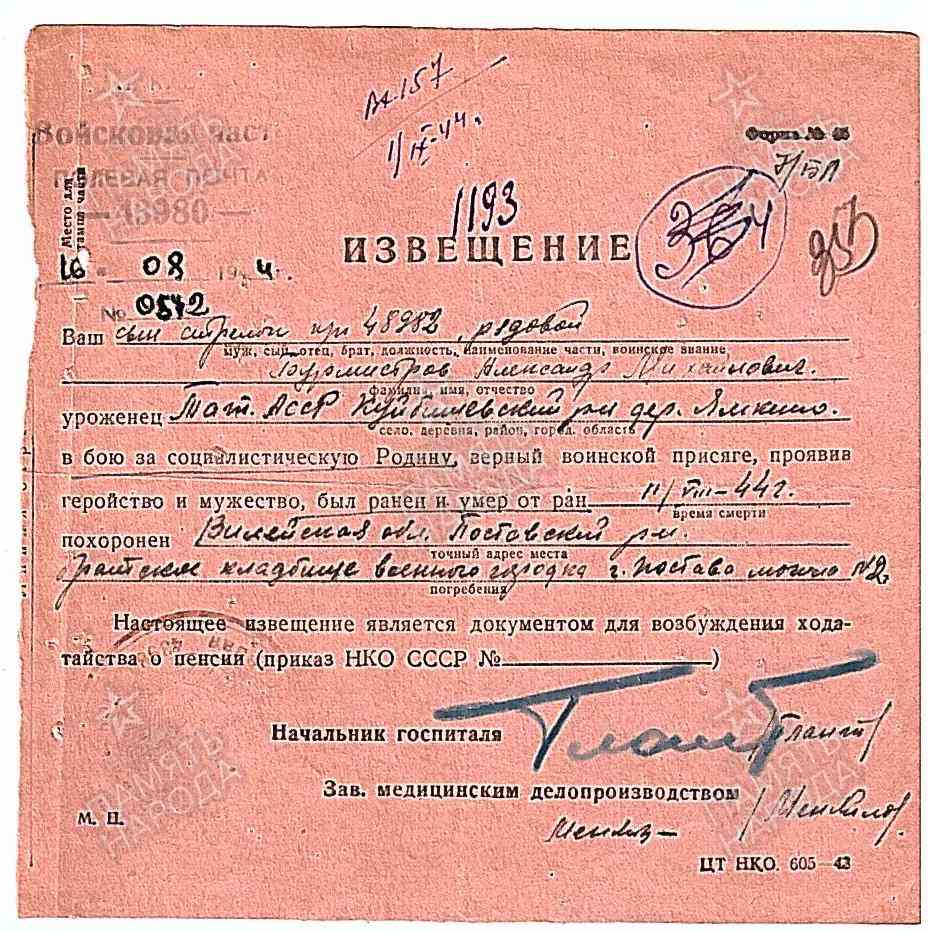 вх. 157
1/IX-44.
Войсковая част
ПОЛЕВАЯ ПОЧТА
— 43980 —
Место для
штампа части
Форма № 46
1193
364
ИЗВЕЩЕНИЕ
16 " 08 194 4 г.
№ 0542
Ваш сын стрелок пп 48982, рядовой
муж, сын, отец, брат, должность, наименование части, воинское звание
Бурмистров Александр Михайлович.
фамилия, имя, отчество
уроженец Тат. АССР Куйбышевский р-н дер. Ямкино.
село, деревня, район, город, область
в бою за социалистическую Родину, верный воинской присяге, проявив
геройство и мужество, был ранен и умер от ран 11/VIII-44 г.
время смерти
похоронен Вилейская обл. Поставский р-н.
точный адрес места
братское кладбище военного городка г. Постава могила №2,
погребения
Настоящее извещение является документом для возбуждения хода-
тайства о пенсии (приказ НКО СССР №)
Начальник госпиталя
Зав. медицинским делопроизводством
М. П.
ЦТ НКО. 605—42
ПАМЯТЬ НАРОДА